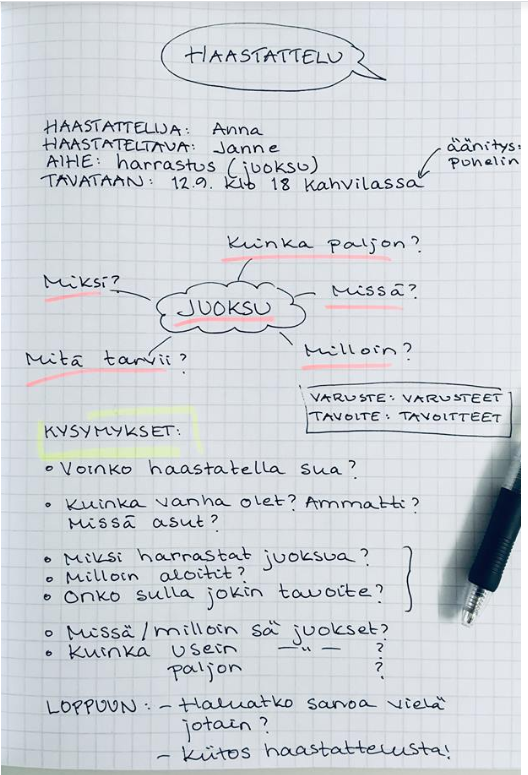 HAASTATTELU
HAASTATTELIJA: Anna
HAASTATELTAVA: Janne
AIHE: harrastus (juoksu)
TAVATAAN: 12.9. klo 18 kahvilassa
äänitys:
puhelin
Kuinka paljon?
Miksi?
JUOKSU
Missä?
Mitä tarvii?
Milloin?
VARUSTE: VARUSTEET
TAVOITE: TAVOITTEET
KYSYMYKSET:
• Voinko haastatella sua?
• Kuinka vanha olet? Ammatti?
Missä asut?
• Miksi harrastat juoksua?
• Milloin aloitit?
• Onko sulla jokin tavoite?
• Missä/milloin sä juokset?
• Kuinka usein —"— ?
paljon ?
LOPPUUN: – Haluatko sanoa vielä
jotain?
– Kiitos haastattelusta!